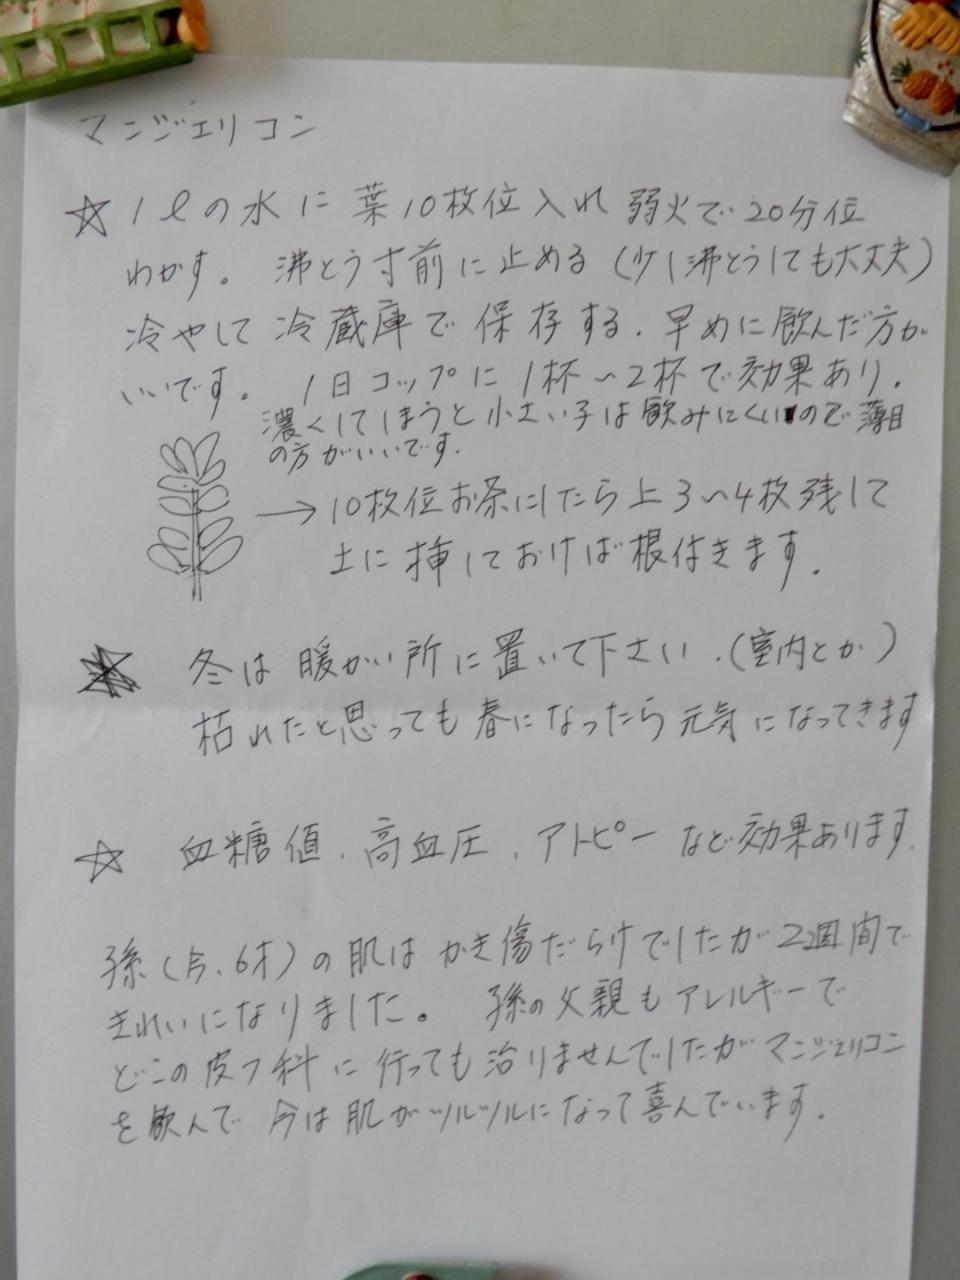 マンジェリコン
☆ 1ℓの水に葉10枚位入れ弱火で20分位
わかす。沸とう寸前に止める(少し沸とうしても大丈夫)
冷やして冷蔵庫で保存する.早めに飲んだ方が
いいです。1日コップに1杯〜2杯で効果あり.
濃くしてしまうと小さい子は飲みにくいので薄目
の方がいいです.
→10枚位お茶にしたら上3〜4枚残して
土に挿しておけば根付きます.
★ 冬は暖かい所に置いて下さい.(室内とか)
枯れたと思っても春になったら元気になってきます
☆ 血糖値.高血圧.アトピーなど効果あります.
孫(今、6才)の肌はかき傷だらけでしたが2週間で
きれいになりました。孫の父親もアレルギーで
どこの皮フ科に行っても治りませんでしたがマンジェリコン
を飲んで今は肌がツルツルになって喜んでいます.